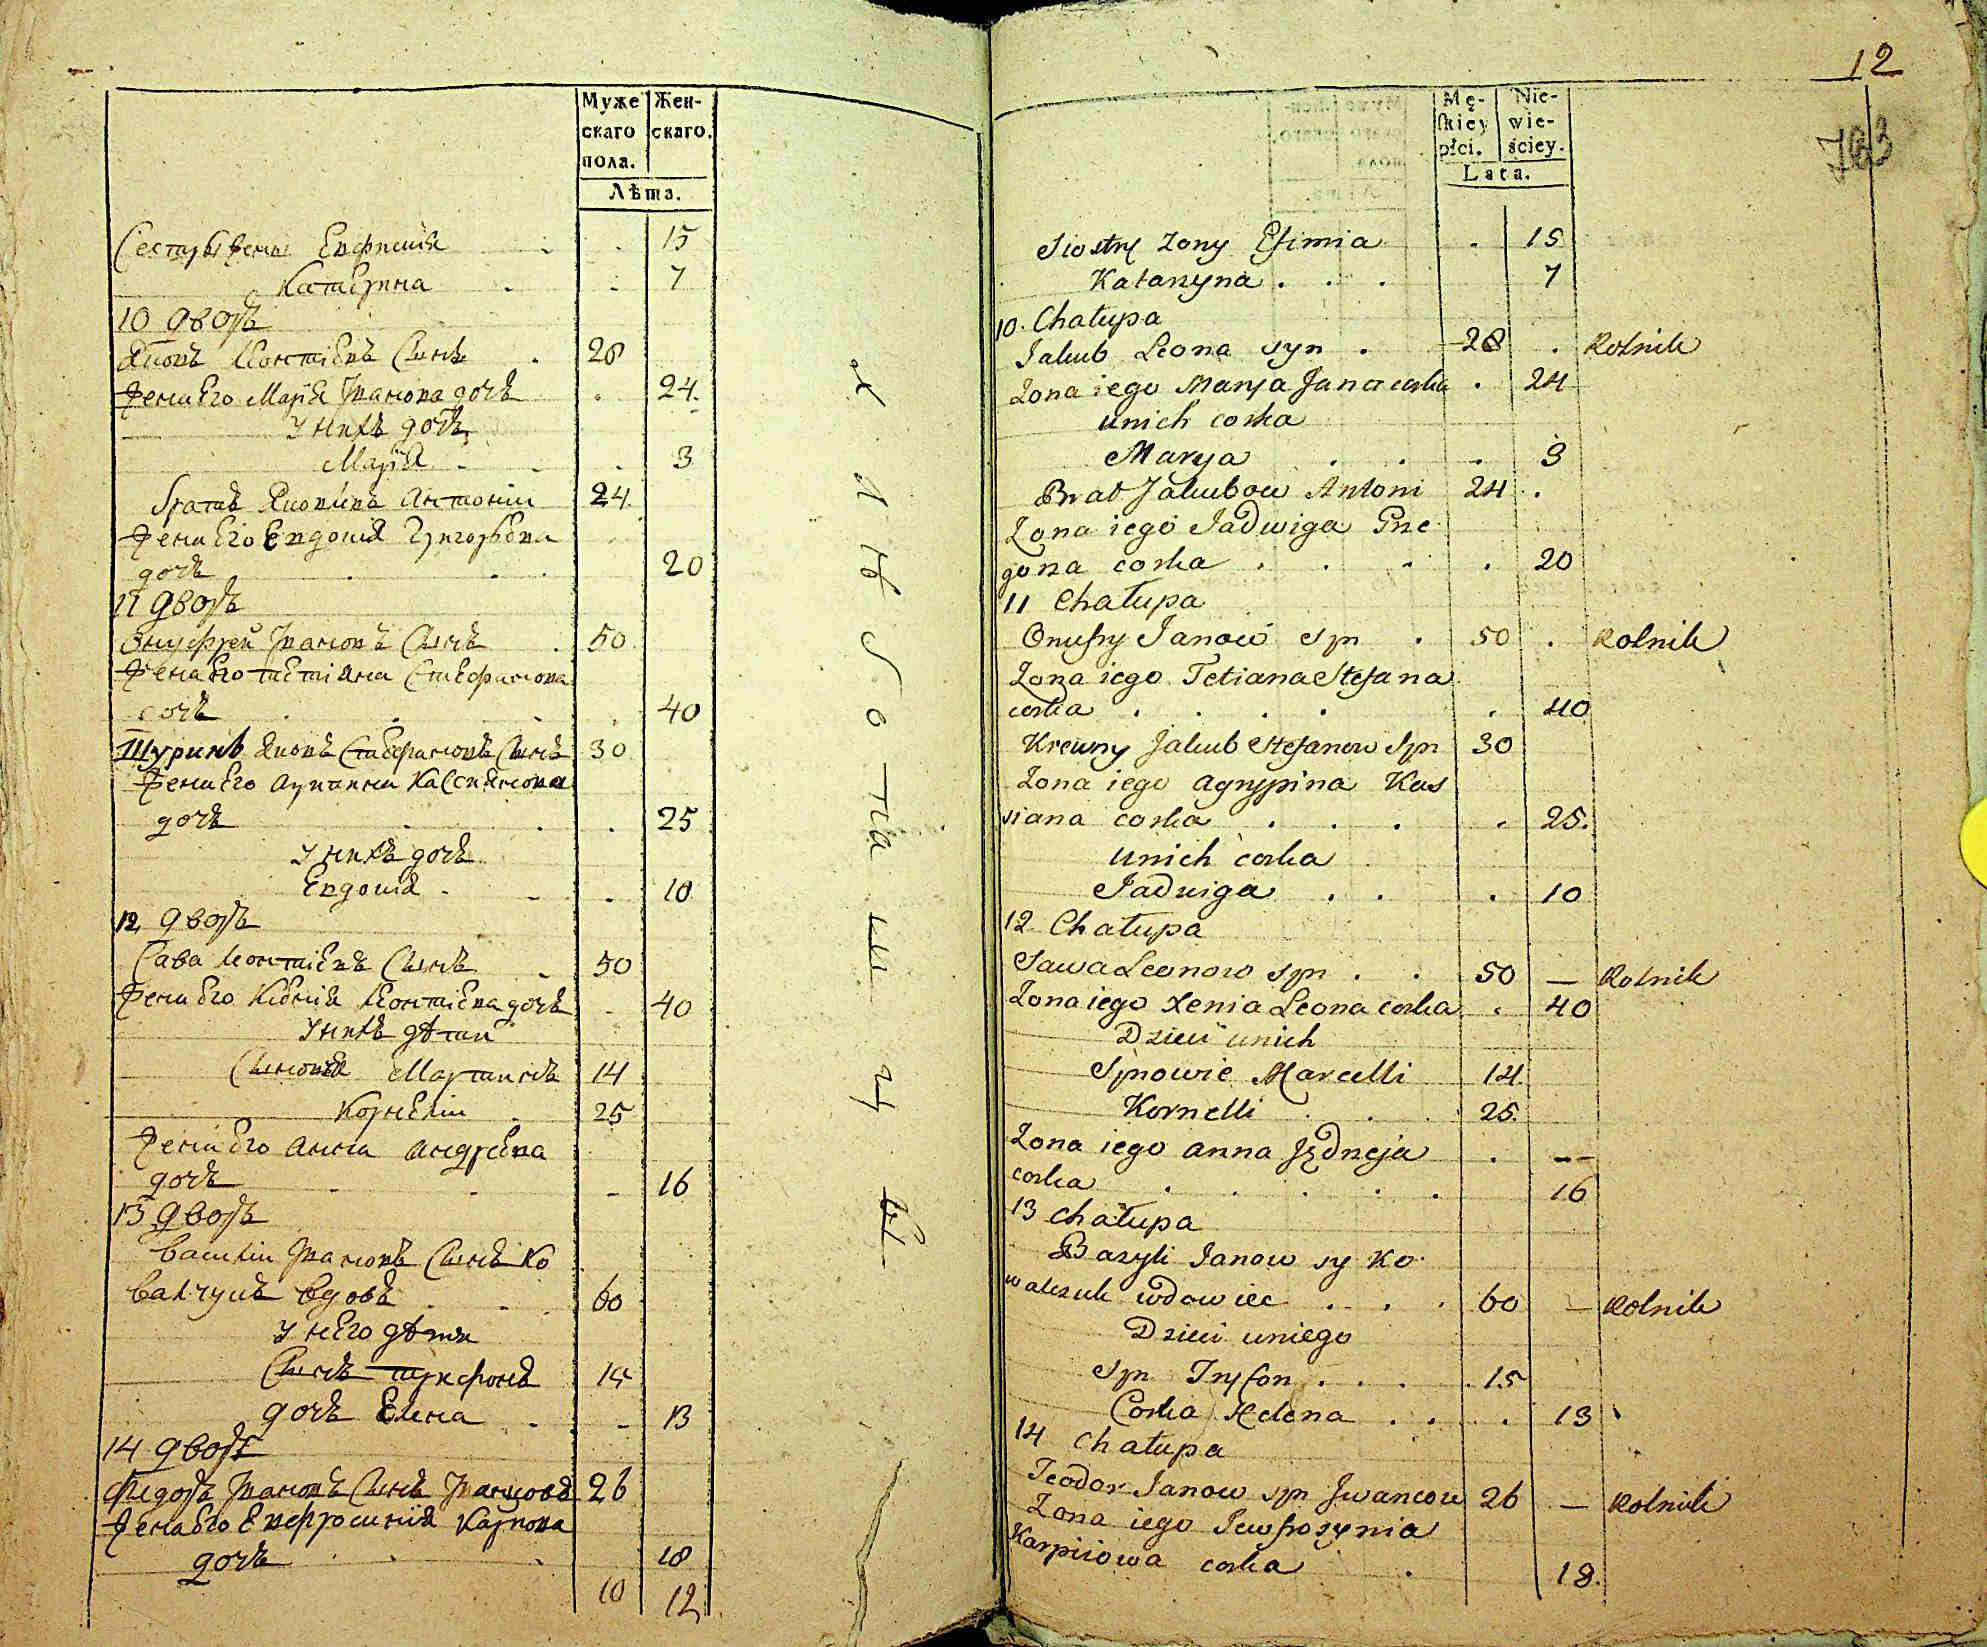 Муже Жен-
скаго скаго.
пола.
Лѣта.
Сестры жены Евфимія 15
Катерина 7
10 дворъ
Яковъ Леонтіевъ Сынъ 28
Жена Его Марія Иванова дочь 24
У нихъ дочь
Марія 3
братъ Яковивъ Антоній 24
Жена Его Евдокія Григорьева
дочь 20
11 дворъ
Онуфрей Ивановъ Сынъ 50
Жена Его Тетіяна Стефанова
дочь 40
Шуринъ Яковъ Стефановъ Сынъ 30
Жена Его Касснянова
дочь 25
У нихъ дочь
Евдокія 10
12 дворъ
Сава Леонтіевъ Сынъ 50
Жена Его Ксенія Леонтіева дочь 40
У нихъ дѣти
Сыновья 14
Корнелій 25
Жена Его Анна Андреева
дочь 16
13 дворъ
Василій Ивановъ Сынъ Ко
валчукъ вдовъ 60
У него дѣти
Сынъ Трифонъ 15
дочь Елена 13
14 дворъ
Фидоръ Ивановъ Сынъ Иванцовъ 26
Жена Его Евфросинія Карпова
дочь 18
10 12
12
703
Mę- Nie-
skiey wie-
płci. ściey.
Lata.
Siostry zony Efimia 15
Katarzyna 7
10. Chałupa
Jakub Leona syn 28 Rolnik
Zona iego Marya Jana corka 24
unich corka
Marya 3
Brat Jakubow Antoni 24
Zona iego Jadwiga Grze
gorza corka 20
11 Chałupa
Onufry Janow syn 50 Rolnik
Zona iego Tetiana Stefana
corka 40
Krewny Jakub Stefanow syn 30
Zona iego Agrypina Kas
siana corka 25.
unich corka
Jadwiga 10
12 Chałupa
Sawa Leonow syn 50 Rolnik
Zona iego Xenia Leona corka 40
Dzieci unich
Synowie Marcelli 14
Kornelli 25.
Zona iego Anna Jędrzeja
corka 16
13 Chałupa
Bazyli Janow sy Ko
walczuk wdowiec 60 Rolnik
Dzieci uniego
Syn Tryfon 15
Corka Helena 13
14 Chałupa
Teodor Janow syn Jwancow 26 Rolnik
Zona iego Jewfrosynia
Karpiowa corka 18.